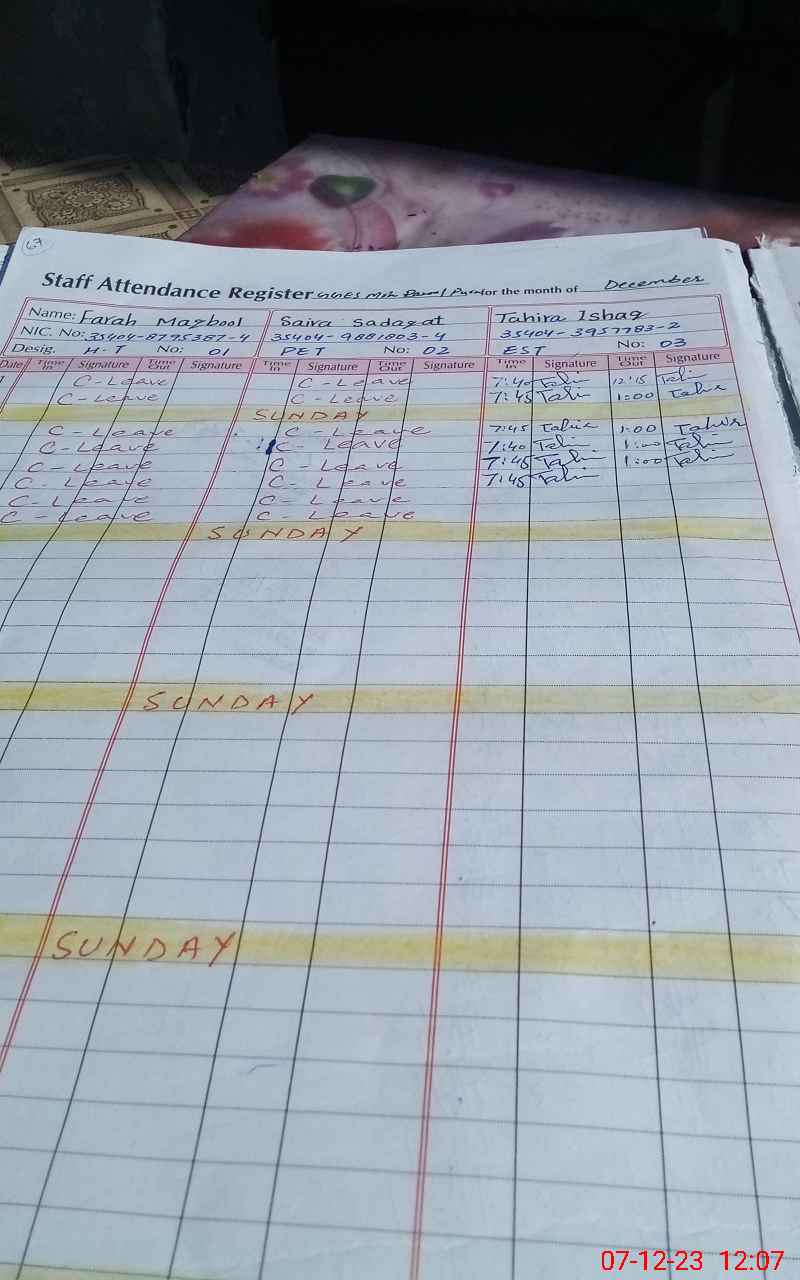 67
Staff Attendance Register GGES Moh for the month of December
Name: Farah Maqbool Saira Sadaqat Tahira Ishaq
NIC. No: 35404-8795387-4 35404-9881803-4 35404-3957783-2
Desig. H.T No: 01 PET No: 02 EST No: 03
Date Time In Signature Time Out Signature Time In Signature Time Out Signature Time In Signature Time Out Signature
1 C-Leave C-Leave 7:40 Tahi 12:15 Tahi
C-Leave C-Leave 7:45 Tahi 1:00 Tahir
SUNDAY
C-Leave C-Leave 7:45 Tahir 1:00 Tahir
C-Leave C-Leave 7:40 Tahi 1:00 Tahi
C-Leave C-Leave 7:45 Tahi 1:00 Tahi
C-Leave C-Leave 7:45 Tahi
C-Leave C-Leave
C-Leave C-Leave
SUNDAY
SUNDAY
SUNDAY
07-12-23 12:07